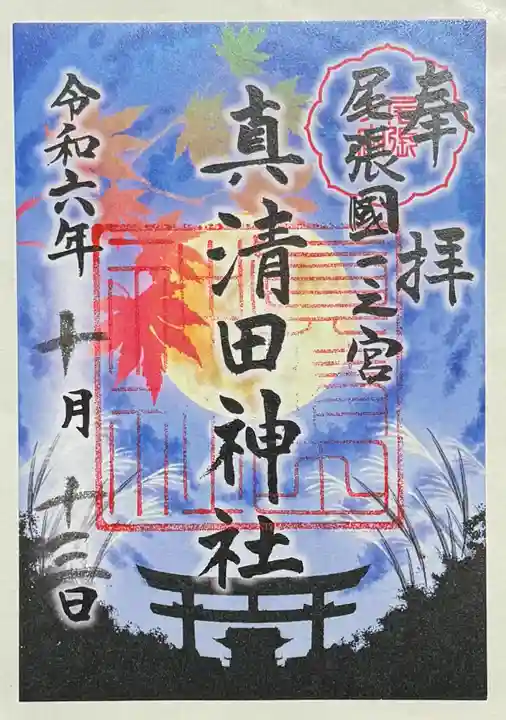 奉拝
尾張國一之宮
真清田神社
令和六年 十月 十三日